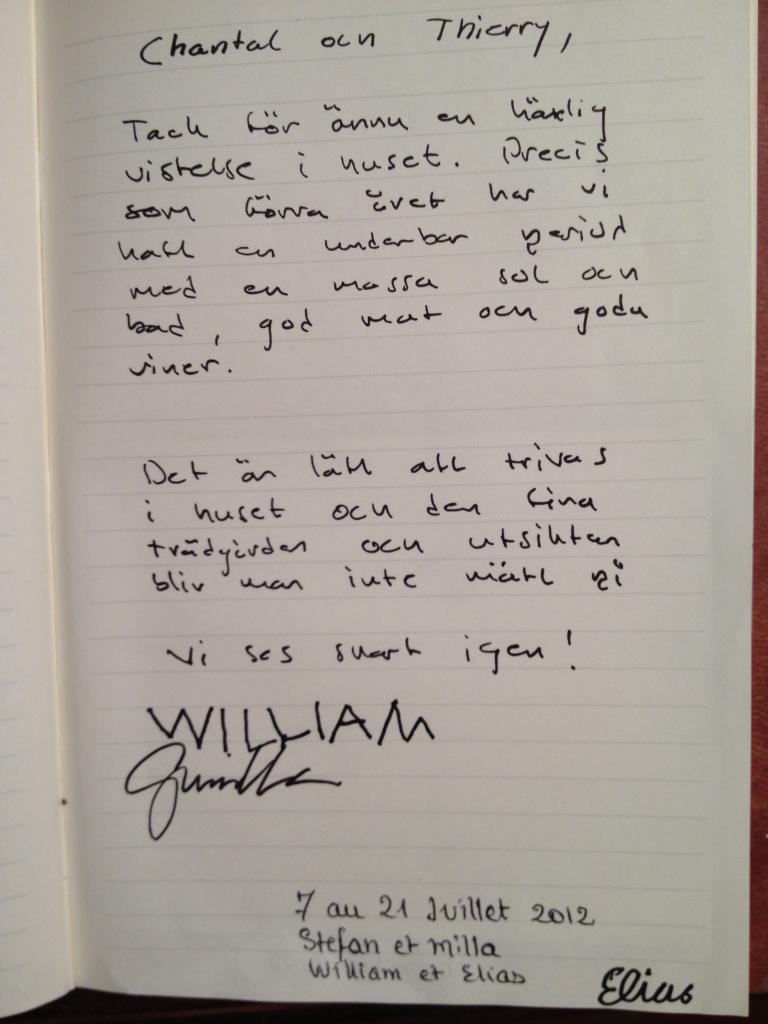 Chantal och Thierry,
Tack för ännu en härlig
vistelse i huset. Precis
som förra året har vi
haft en underbar period
med en massa sol och
bad, god mat och goda
viner.
Det är lätt att trivas
i huset och den fina
trädgården och utsikten
blir man inte mätt på
Vi ses snart igen!
WILLIAM
Gunilla
7 au 21 Juillet 2012
Stefan et Milla
William et Elias
Elias